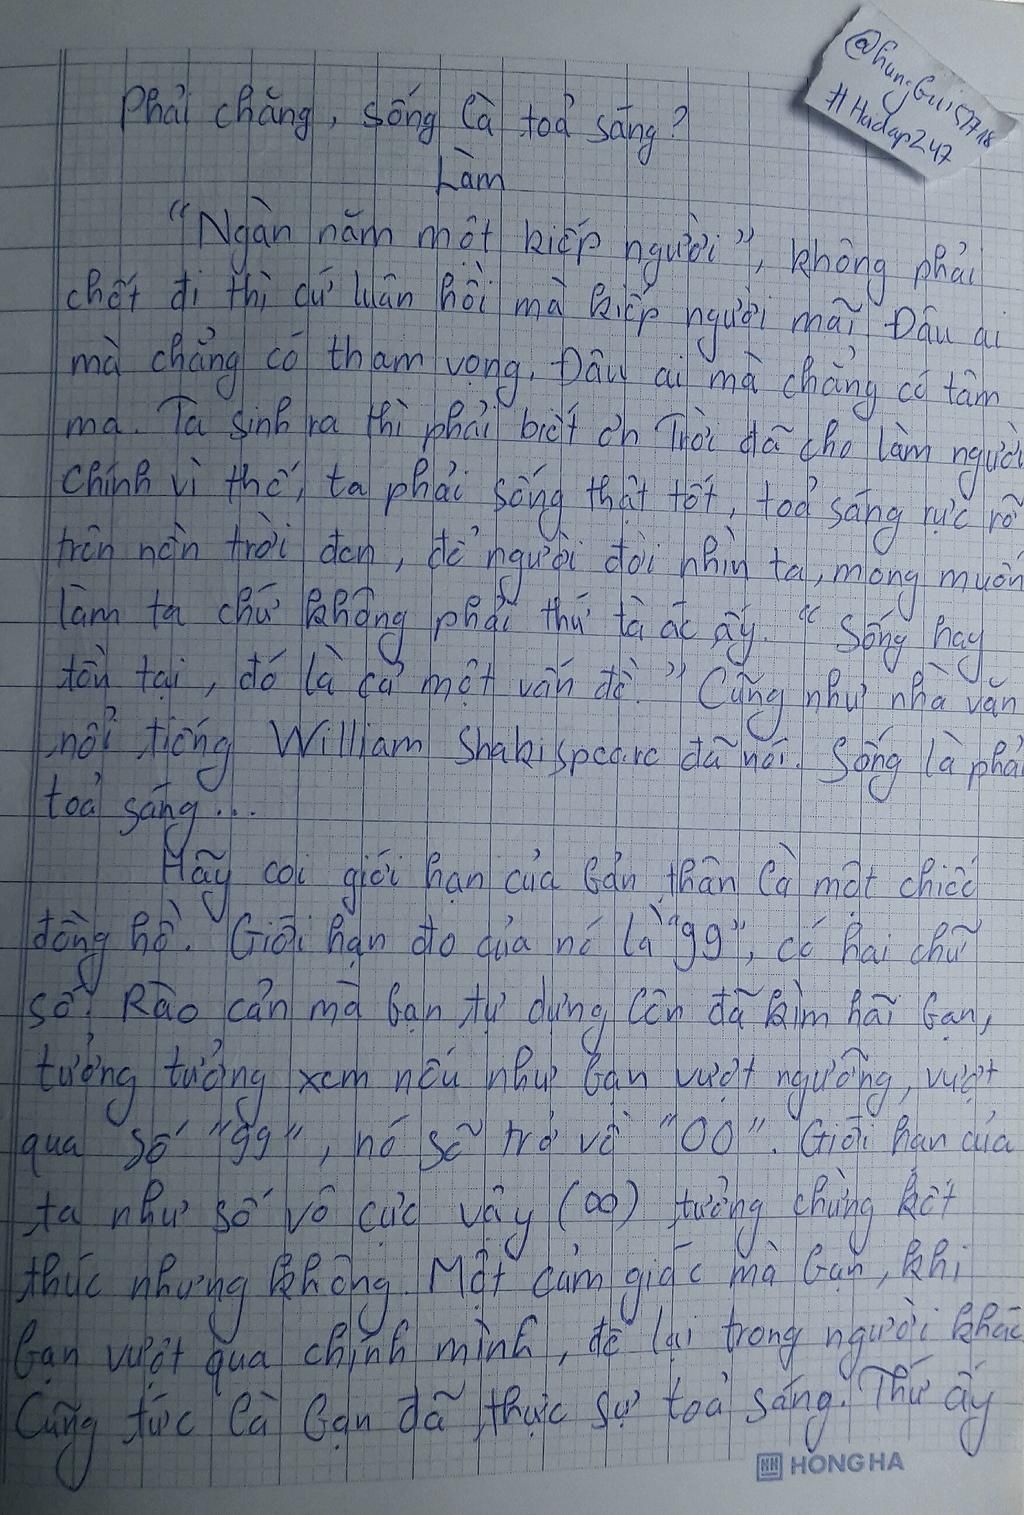 @hungbui57718
#Hadap247
Phải chăng, sống là toả sáng?
Làm
"Ngàn năm một kiếp người", không phải
chết đi thì cứ luân hồi mà kiếp người mãi. Đâu ai
mà chẳng có tham vọng. Đâu ai mà chẳng có tâm
ma. Ta sinh ra thì phải biết ơn Trời đã cho làm người
Chính vì thế, ta phải sống thật tốt, toả sáng rực rỡ
trên nền trời đen, để người đời nhìn ta, mong muốn
làm ta chứ không phải thứ tà ác ấy. "Sống hay
tồn tại, đó là cả một vấn đề." Cũng như nhà văn
nổi tiếng William Shakispeare đã nói. Sống là phải
toả sáng...
Hãy coi giới hạn của bản thân là một chiếc
đồng hồ. Giới hạn đo của nó là "99", có hai chữ
số. Rào cản mà bạn tự dựng lên đã kìm hãi bạn,
tưởng tưởng xem nếu như bạn vượt ngưỡng, vượt
qua số "99", nó sẽ trở về "00". Giới hạn của
ta như số vô cực vậy (∞) tưởng chừng kết
thúc nhưng không. Một cảm giác mà bạn, khi
bạn vượt qua chính mình, để lại trong người khác
Cũng tức là bạn đã thực sự toả sáng. Thứ ấy
HONG HA